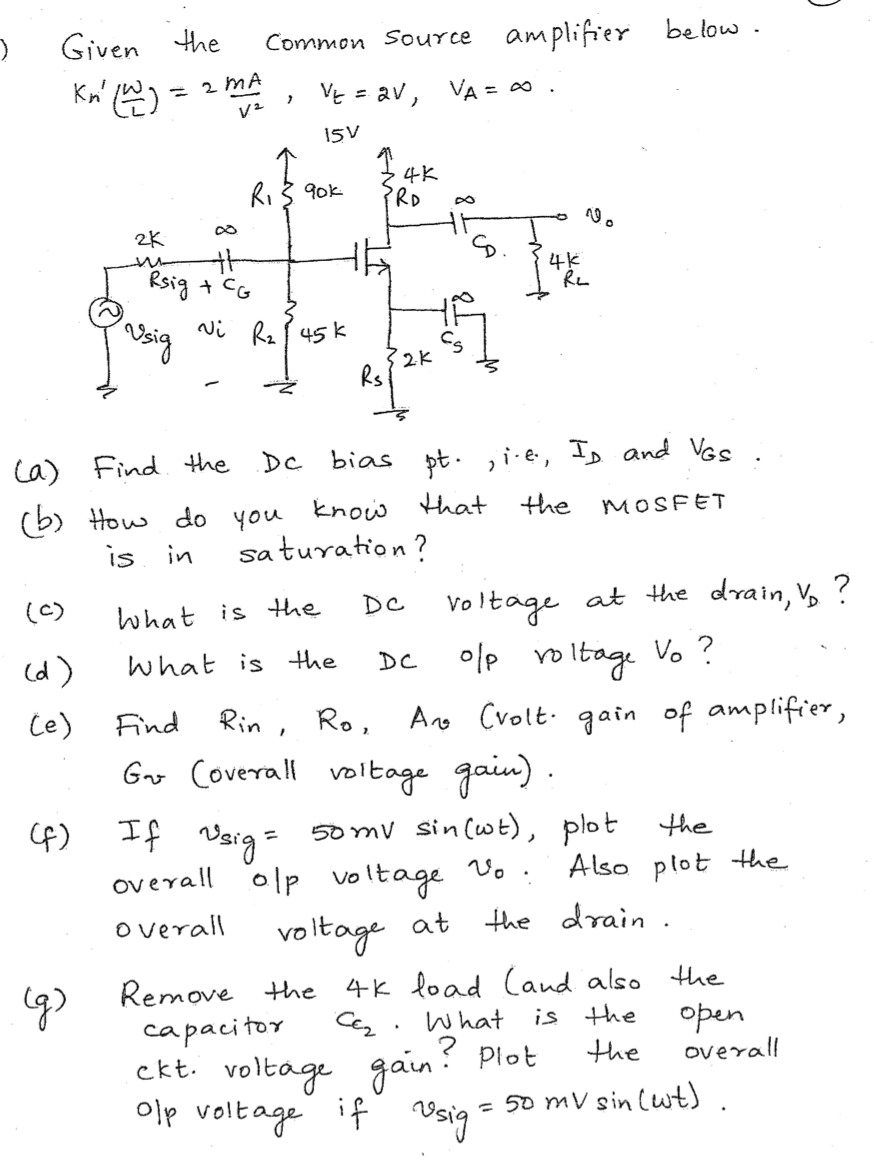 ) Given the common source amplifier below.
Kn' (W/L) = 2 mA/V² , Vt = 2V, VA = ∞ .
15V
R1 90k
4K
RD
∞
vo
2K
∞
CD.
4k
RL
Rsig + CG
∞
vsig vi R2 45k
Cs
Rs 2K
-
(a) Find the DC bias pt. , i.e., ID and VGS .
(b) How do you know that the MOSFET
is in saturation?
(c) What is the DC voltage at the drain, VD ?
(d) What is the DC o/p voltage Vo ?
(e) Find Rin , Ro, Av (volt. gain of amplifier,
Gv (overall voltage gain) .
(f) If vsig = 50mV sin(wt), plot the
overall o/p voltage vo . Also plot the
overall voltage at the drain .
(g) Remove the 4k load (and also the
capacitor Cc2 . What is the open
ckt. voltage gain? Plot the overall
o/p voltage if vsig = 50 mV sin(wt) .